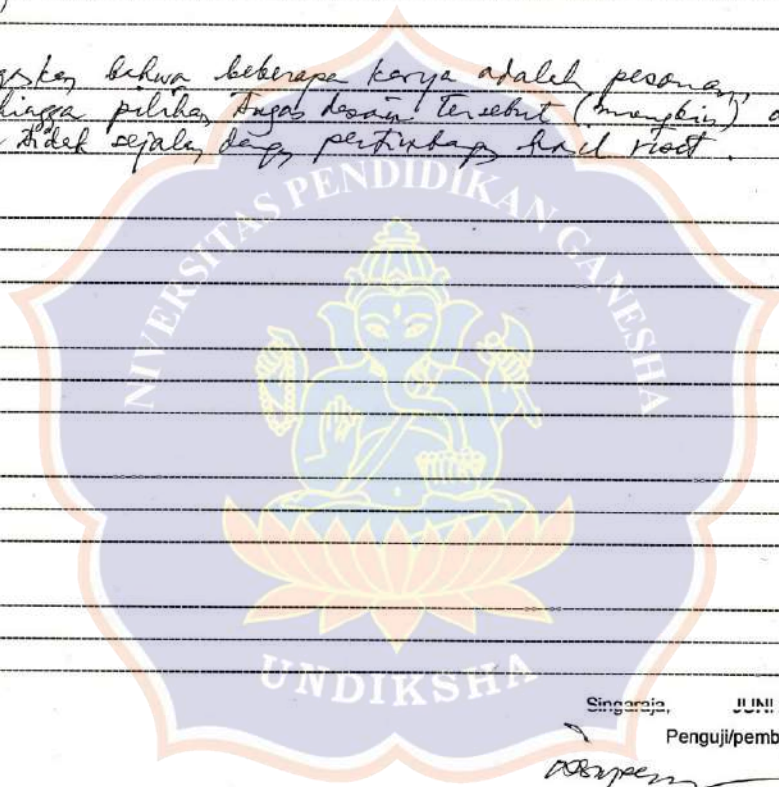 bahwa beberapa karya adalah pesanan,
hingga pilihan tugas desain tersebut (mungkin)
tidak sejalan dengan pertimbangan hasil riset.
NIVERSITAS PENDIDIKAN GANESHA
UNDIKSHA
Singaraja, JUNI
Penguji/pemb